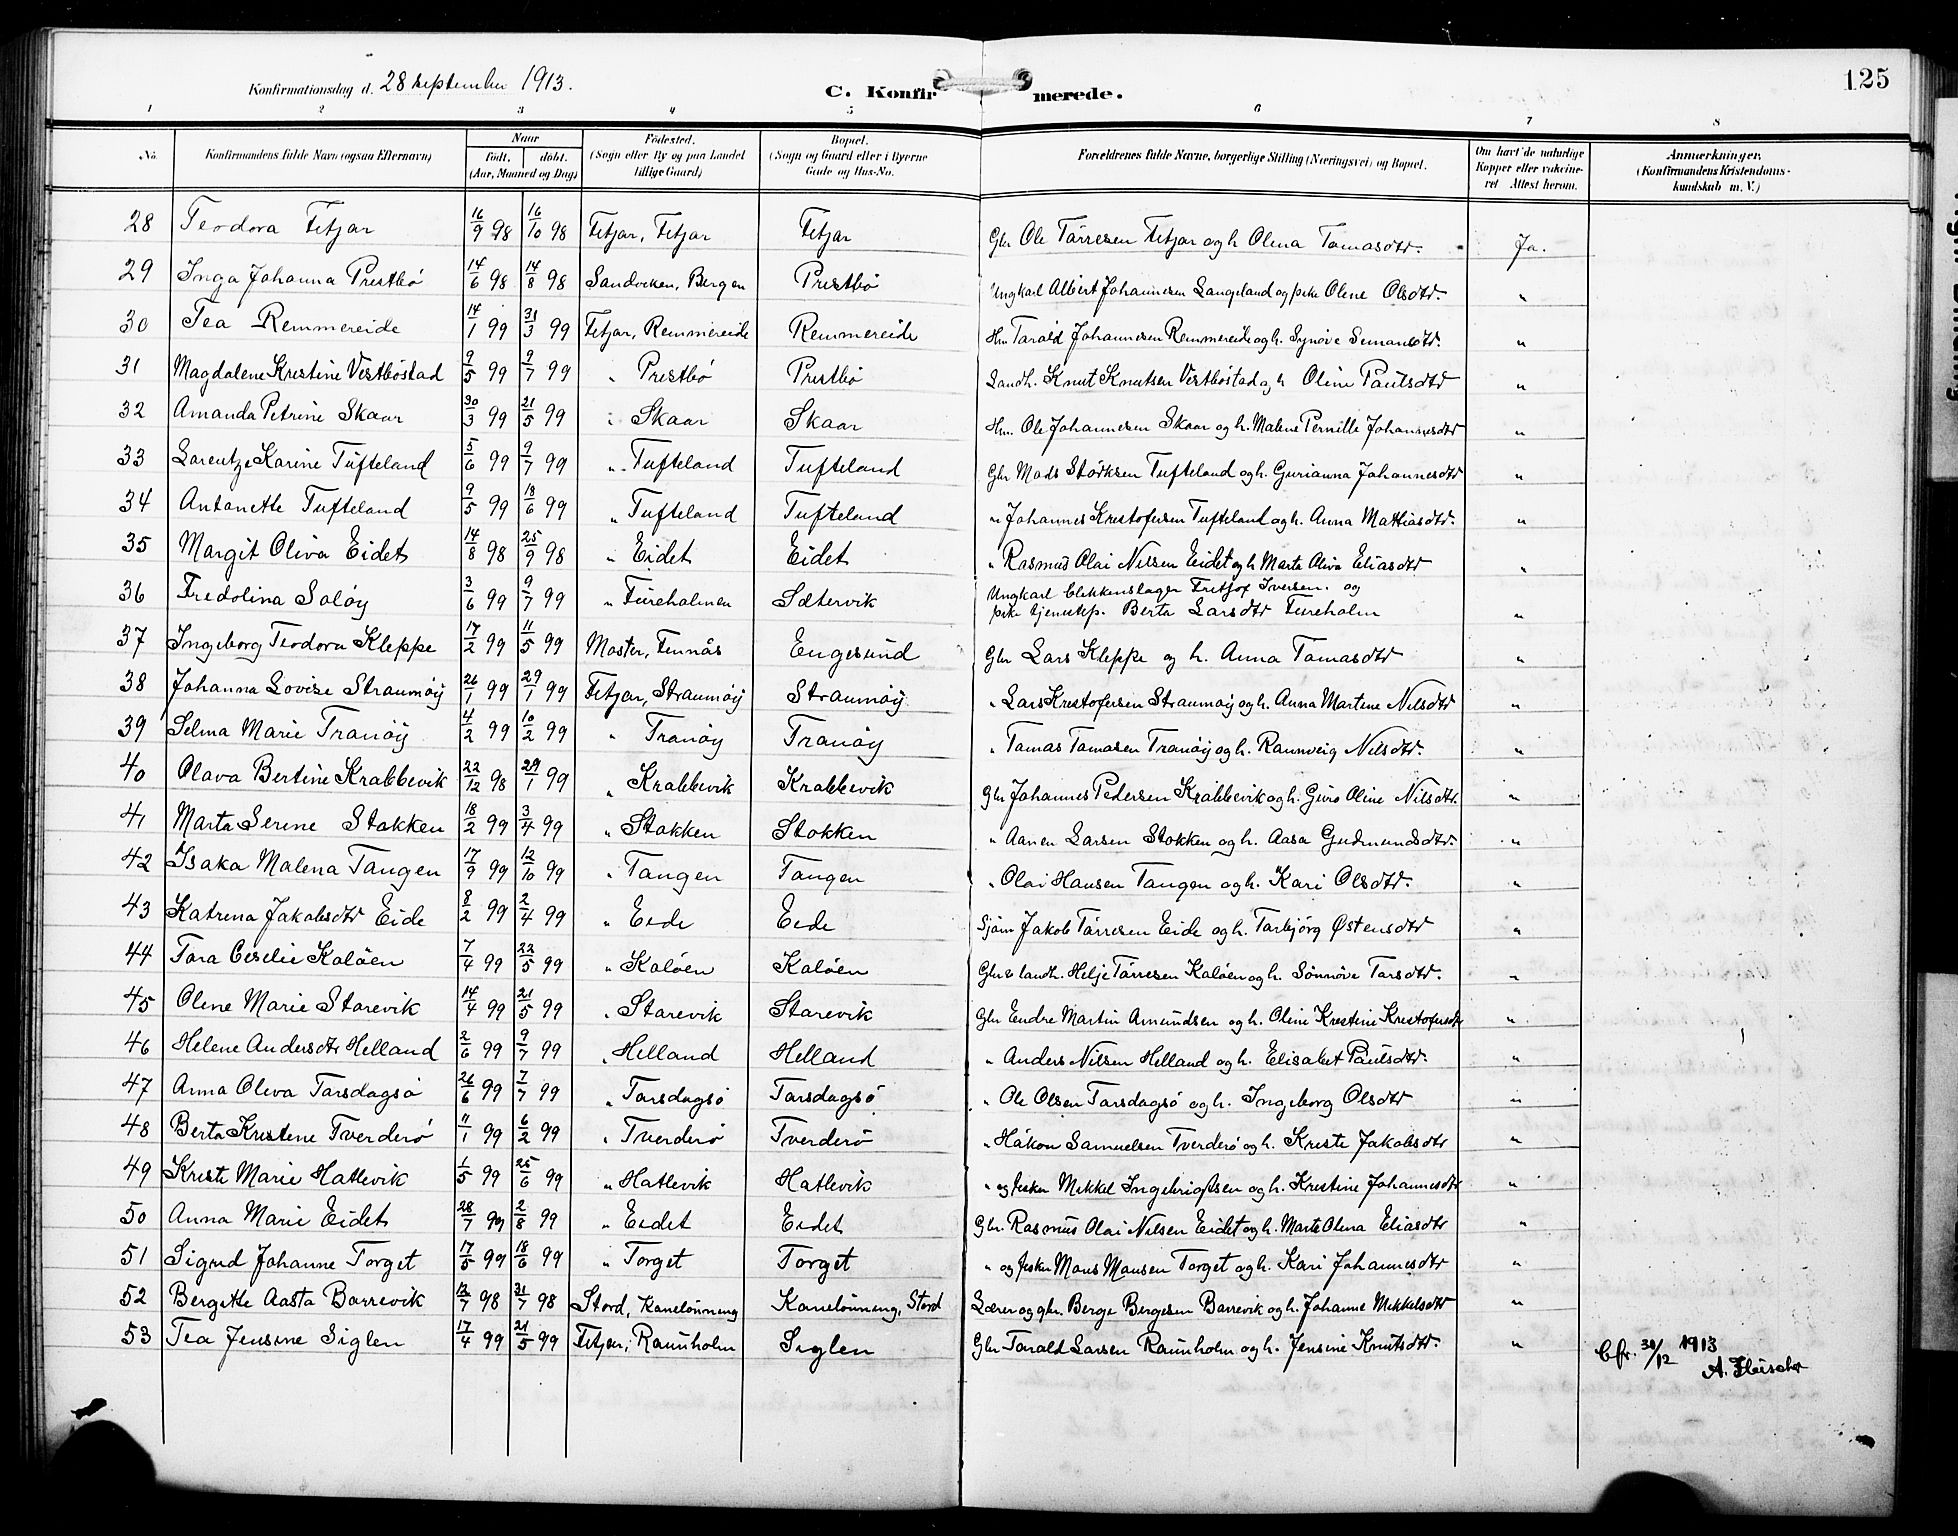 Konfirmationsdag d. 28 september 1913.
C. Konfirmerede.
125
1 2 3 4 5 6 7 8
No. Konfirmandens fulde Navn (ogsaa Efternavn) Naar født, døbt. (Aar, Maaned og Dag) Fødested. (Sogn eller By og paa Landet tillige Gaard) Bopæl. (Sogn og Gaard eller i Byerne Gade og Hus-No. Forældrenes fulde Navne, borgerlige Stilling (Næringsvei) og Bopæl. Om havt de naturlige Kopper eller vakcineret Attest herom. Anmærkninger. (Konfirmandens Kristendomskundskab m. V.)
28 Teodora Fitjar 16/9 98 16/10 98 Fitjar, Fitjar Fitjar Gbr Ole Tørresen Fitjar og h. Olina Tomasdtr. Ja.
29 Inga Johanna Prestbø 14/6 98 14/8 98 Sandviken, Bergen Prestbø Ungkarl Albert Johannesen Langeland og pike Oline Olsdtr. "
30 Tea Remmereide 14/1 99 31/3 99 Fitjar, Remmereide Remmereide Hm. Tarald Johannesen Remmereide og h. Synøve Simonsdtr. "
31 Magdalene Kristine Vestbøstad 9/5 99 9/7 99 " Prestbø Prestbø Landh. Knut Knutsen Vestbøstad og h Oline Paulsdtr "
32 Amanda Petrine Skaar 30/3 99 21/5 99 " Skaar Skaar Hm. Ole Johannesen Skaar og h. Malene Pernille Johannesdtr "
33 Lorentze Karine Tufteland 5/6 99 9/7 99 " Tufteland Tufteland Gbr Mads Størksen Tufteland og h. Gurianna Johannesdtr "
34 Antonette Tufteland 9/5 99 18/6 99 " Tufteland Tufteland " Johannes Kristofersen Tufteland og h. Anna Mattiasdtr. "
35 Margit Oliva Eidet 14/8 98 25/9 98 " Eidet Eidet " Rasmus Olai Nilsen Eidet og h Marta Oliva Eliasdtr "
36 Fredolina Soløy 3/6 99 9/7 99 " Fureholmen Sætervik Ungkarl blikkenslager Fritjof Iversen og
pike tjenestep. Berta Larsdtr Fureholm "
37 Ingeborg Teodora Kleppe 17/2 99 11/5 99 Moster, Finnås Engesund Gbr Lars Kleppe og h. Anna Tomasdtr "
38 Johanna Lovise Straumøy 26/1 99 29/1 99 Fitjar, Straumøy Straumøy " Lars Kristofersen Straumøy og h. Anna Martine Nilsdtr "
39 Selma Marie Tranøy 4/2 99 10/2 99 " Tranøy Tranøy " Tomas Tomasen Tranøy og h. Rannveig Nilsdtr. "
40 Olava Bertine Krabbevik 22/12 98 29/1 99 " Krabbevik Krabbevik Gbr Johannes Pedersen Krabbevik og h. Guro Oline Nilsdtr. "
41 Marta Serine Stokken 18/2 99 3/4 99 " Stokken Stokken " Aanen Larsen Stokken og h. Aasa Gudmundsdtr. "
42 Isaka Malena Tangen 17/9 99 12/10 99 " Tangen Tangen " Olai Hansen Tangen og h. Kari Olsdtr. "
43 Katrina Jakobsdtr Eide 8/2 99 2/4 99 " Eide Eide Sjøm Jakob Tørresen Eide og h. Torbjørg Østensdtr "
44 Tora Ceselie Koløen 7/4 99 22/5 99 " Koløen Koløen Gbr & landh. Helje Tørresen Koløen og h. Sønnøve Torsdtr. "
45 Oline Marie Størevik 14/4 99 21/5 99 " Storevik Storevik Gbr Endre Martin Amundsen og h. Oline Kristine Kristofersdtr "
46 Helene Andersdtr Helland 2/6 99 9/7 99 " Helland Helland " Anders Nilsen Helland og h. Elisabet Paulsdtr. "
47 Anna Oliva Torsdagsø 26/6 99 7/7 99 " Torsdagsø Torsdagsø " Ole Olsen Torsdagsø og h. Ingeborg Olsdtr "
48 Berta Kristine Tverderø 11/1 99 6/2 99 " Tverderø Tverderø " Håkon Samuelsen Tverderø og h. Kristi Jakobsdtr "
49 Kristi Marie Hatlevik 1/5 99 25/6 99 " Hatlevik Hatlevik " og fisker Mikkel Ingebrigtsen og h. Kristine Johannesdtr "
50 Anna Marie Eidet 28/7 99 2/8 99 " Eidet Eidet Gbr. Rasmus Olai Nilsen Eidet og h. Marta Olina Eliasdtr "
51 Sigrid Johanne Torget 17/5 99 18/6 99 " Torget Torget " og fisker Mons Monsen Torget og h. Kari Johannesdtr "
52 Bergitte Aasta Barrevik 12/7 98 31/7 98 Stord, Kanelønning Kanelønning, Stord Lærer og gbr. Berge Bergesen Barrevik og h. Johanne Mikkelsdtr "
53 Tea Jensine Siglen 17/4 99 21/5 99 Fitjar, Raunholm Siglen Gbr Tarald Larsen Raunholm og h. Jensine Knutsdtr. " Cfr. 30/12 1913
A. Fleischer